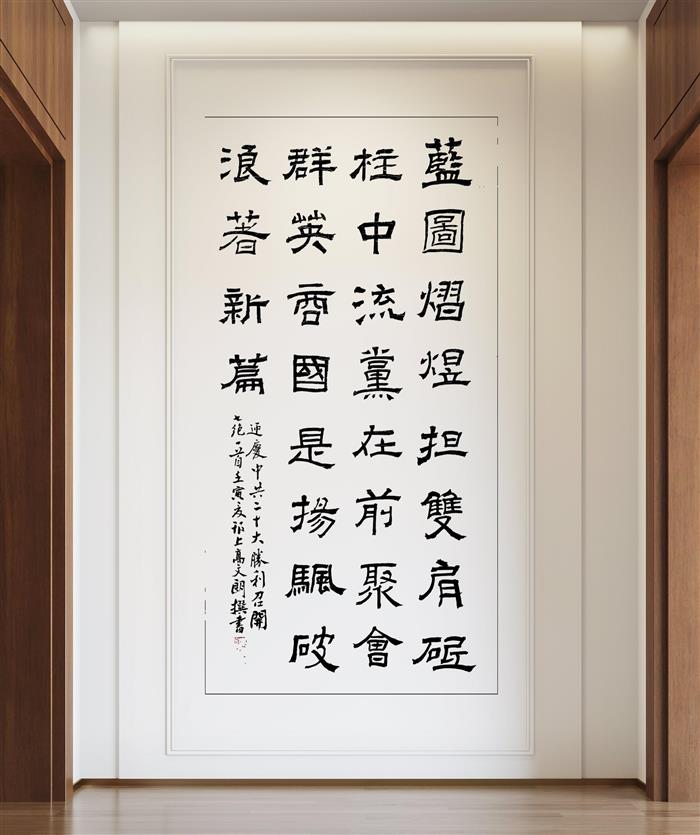 藍圖熠煜担雙肩砥
柱中流黨在前聚會
群英商國是揚颿破
浪著新篇
迎慶中共二十大勝利召開
七絕一首壬寅夏上高文朗撰書